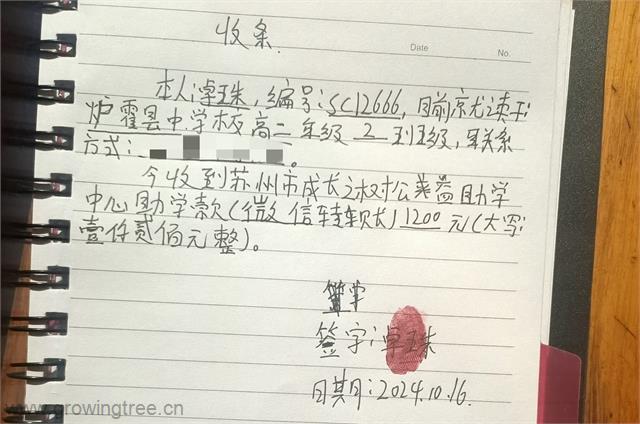 收条.
Date
No.
本人泽珠,编号:SC12666,目前就读于:
炉霍县中学校高二年级 2 班级,联系
方式:
今收到苏州市成长之树公益助学
中心助学款(微信转账)1200元(大写:
壹仟贰佰元整)。
签字:泽珠
日期:2024.10.16.
www.growingtree.cn